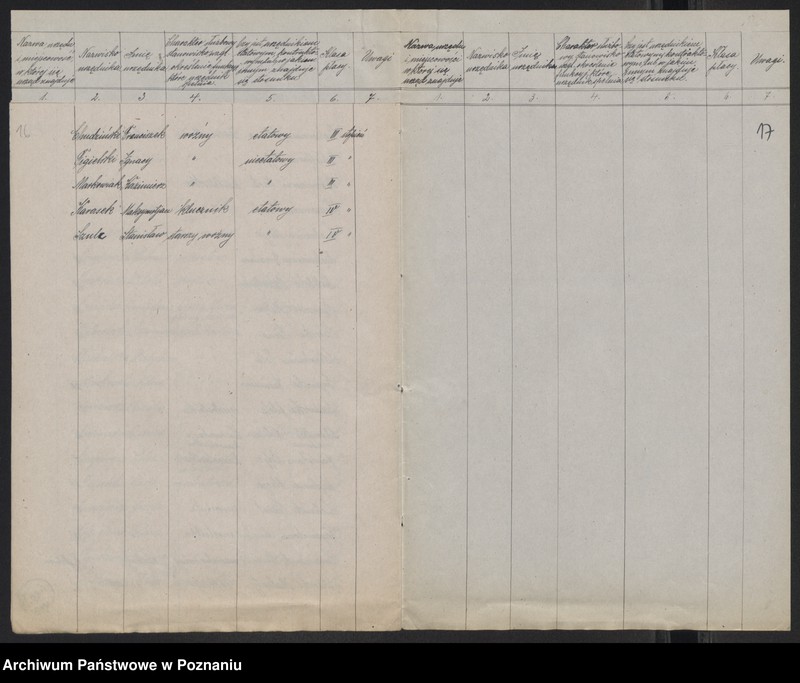 Nazwa urzędu
i miejscowość
w której się
urząd znajduje
Nazwisko
urzędnika
Imię
urzędnika
Charakter służbowy
stanowisko wzgl.
określenie funkcji
które urzędnik
spełnia
Czy jest urzędnikiem
etatowym, kontrakto-
wym lub w jakim
innym znajduje
się stosunku
Klasa
płacy
Uwagi
1. 2. 3. 4. 5. 6. 7.
16
Franciszek woźny etatowy III stopień
Ignacy " nieetatowy III "
Maćkowiak Kazimierz " " III "
Maksymiljan etatowy IV "
Stanisław starszy woźny " IV "
Nazwa urzędu
i miejscowość
w której się
urząd znajduje
Nazwisko
urzędnika
Imię
urzędnika
Charakter służbo-
wy stanowisko
wzgl. określenie
funkcji które
urzędnik spełnia
Czy jest urzędnikiem
etatowym, kontrakto-
wym lub w jakim
innym znajduje
się stosunku
Klasa
płacy
Uwagi
1. 2. 3. 4. 5. 6. 7.
17
Archiwum Państwowe w Poznaniu